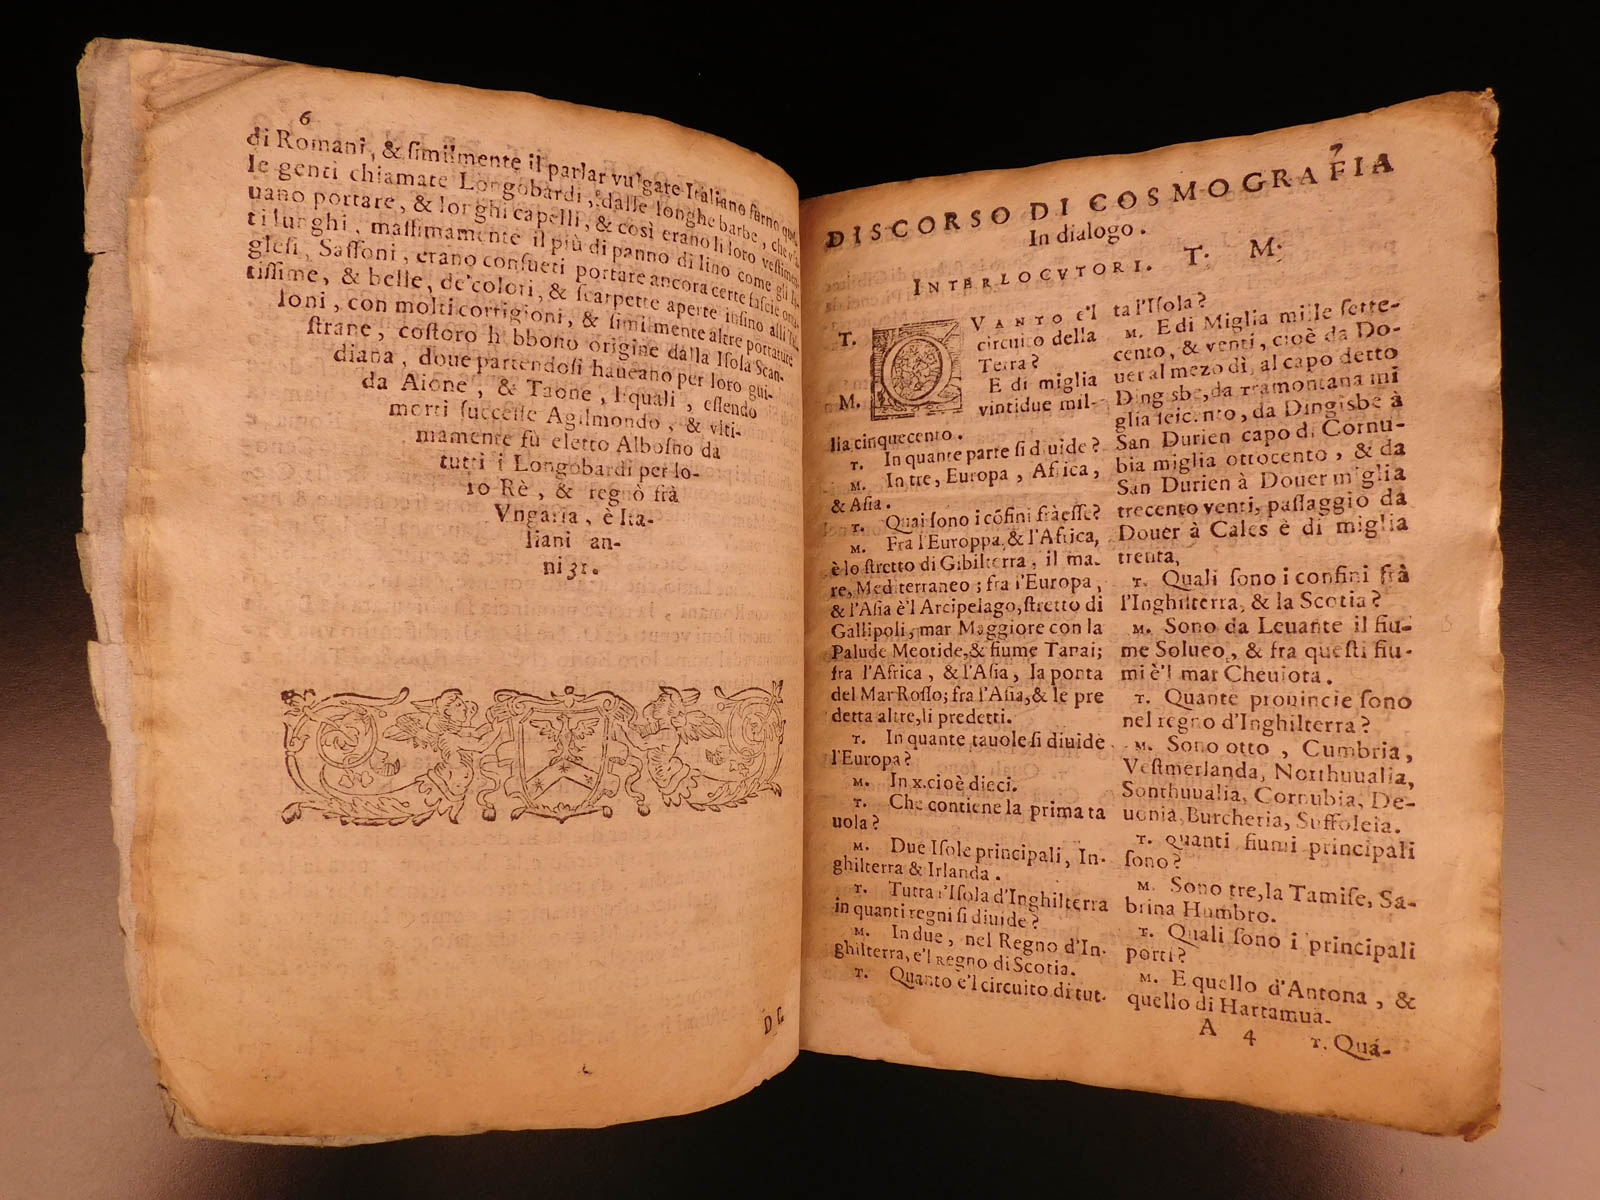 6
di Romani, & ſimilmente il parlar vulgate Italiano furno
le genti chiamate Longobardi, dalle longhe barbe, che
uano portare, & lorghi capelli, & così erano li loro veſtimen-
ti lunghi, maſſimamente il più di panno di lino come gli In-
gleſi, Saſſoni, erano conſueti portare ancora certe faſcie
tiſſime, & belle, de'colori, & ſcarpette aperte inſino alli
loni, con molti corrigioni, & ſimilmente altre portature
ſtrane, coſtoro hebbono origine dalla Iſola Scan-
diana, doue partendoſi haueano per loro gui-
da Aione, & Taone, liquali, eſſendo
morti ſucceſſe Agilmondo, & vlti-
mamente fù eletto Alboſno da
tutti i Longobardi per lo-
ro Rè, & regnò frà
Vngaria, è Ita-
liani an-
ni 31.
7
DISCORSO DI COSMOGRAFIA
In dialogo.
INTERLOCVTORI. T. M.
T. QVANTO è'l
circuito della
Terra?
M. E di miglia
vintidue mil-
lia cinquecento.
T. In quante parte ſi diuide?
M. In tre, Europa, Africa,
& Aſia.
T. Quai ſono i cõfini frà eſſe?
M. Fra l'Europpa, & l'Africa,
è lo ſtretto di Gibilterra, il ma-
re, Mediterraneo; fra l'Europa,
& l'Aſia è'l Arcipelago, ſtretto di
Gallipoli, mar Maggiore con la
Palude Meotide, & fiume Tanai;
fra l'Africa, & l'Aſia, la ponta
del Mar Roſſo; fra l'Aſia, & le pre
detta altre, li predetti.
T. In quante tauole ſi diuide
l'Europa?
M. In x. cioè dieci.
T. Che contiene la prima ta
uola?
M. Due Iſole principali, In-
ghilterra & Irlanda.
T. Tutta l'Iſola d'Inghilterra
in quanti regni ſi diuide?
M. In due, nel Regno d'In-
ghilterra, e'l Regno di Scotia.
T. Quanto è'l circuito di tut-
ta l'Iſola?
M. E di Miglia mille ſette-
cento, & venti, cioè da Do-
uer al mezo dì, al capo detto
Dingsbe, da Tramontana mi
glia ſeicento, da Dingisbe à
San Durien capo di Cornu-
bia miglia ottocento, & da
San Durien à Douer miglia
trecento venti, paſſaggio da
Douer à Cales è di miglia
trenta,
T. Quali ſono i confini frà
l'Inghilterra, & la Scotia?
M. Sono da Leuante il fiu-
me Solueo, & fra queſti fiu-
mi è'l mar Cheuiota.
T. Quante prouincie ſono
nel regno d'Inghilterra?
M. Sono otto, Cumbria,
Veſtmerlanda, Northuualia,
Sonthuualia, Cornubia, De-
uonia, Burcheria, Suffoleia.
T. Quanti fiumi principali
ſono?
M. Sono tre, la Tamiſe, Sa-
brina Humbro.
T. Quali ſono i principali
porti?
M. E quello d'Antona, &
quello di Hartamua.
A 4
T. Quá-